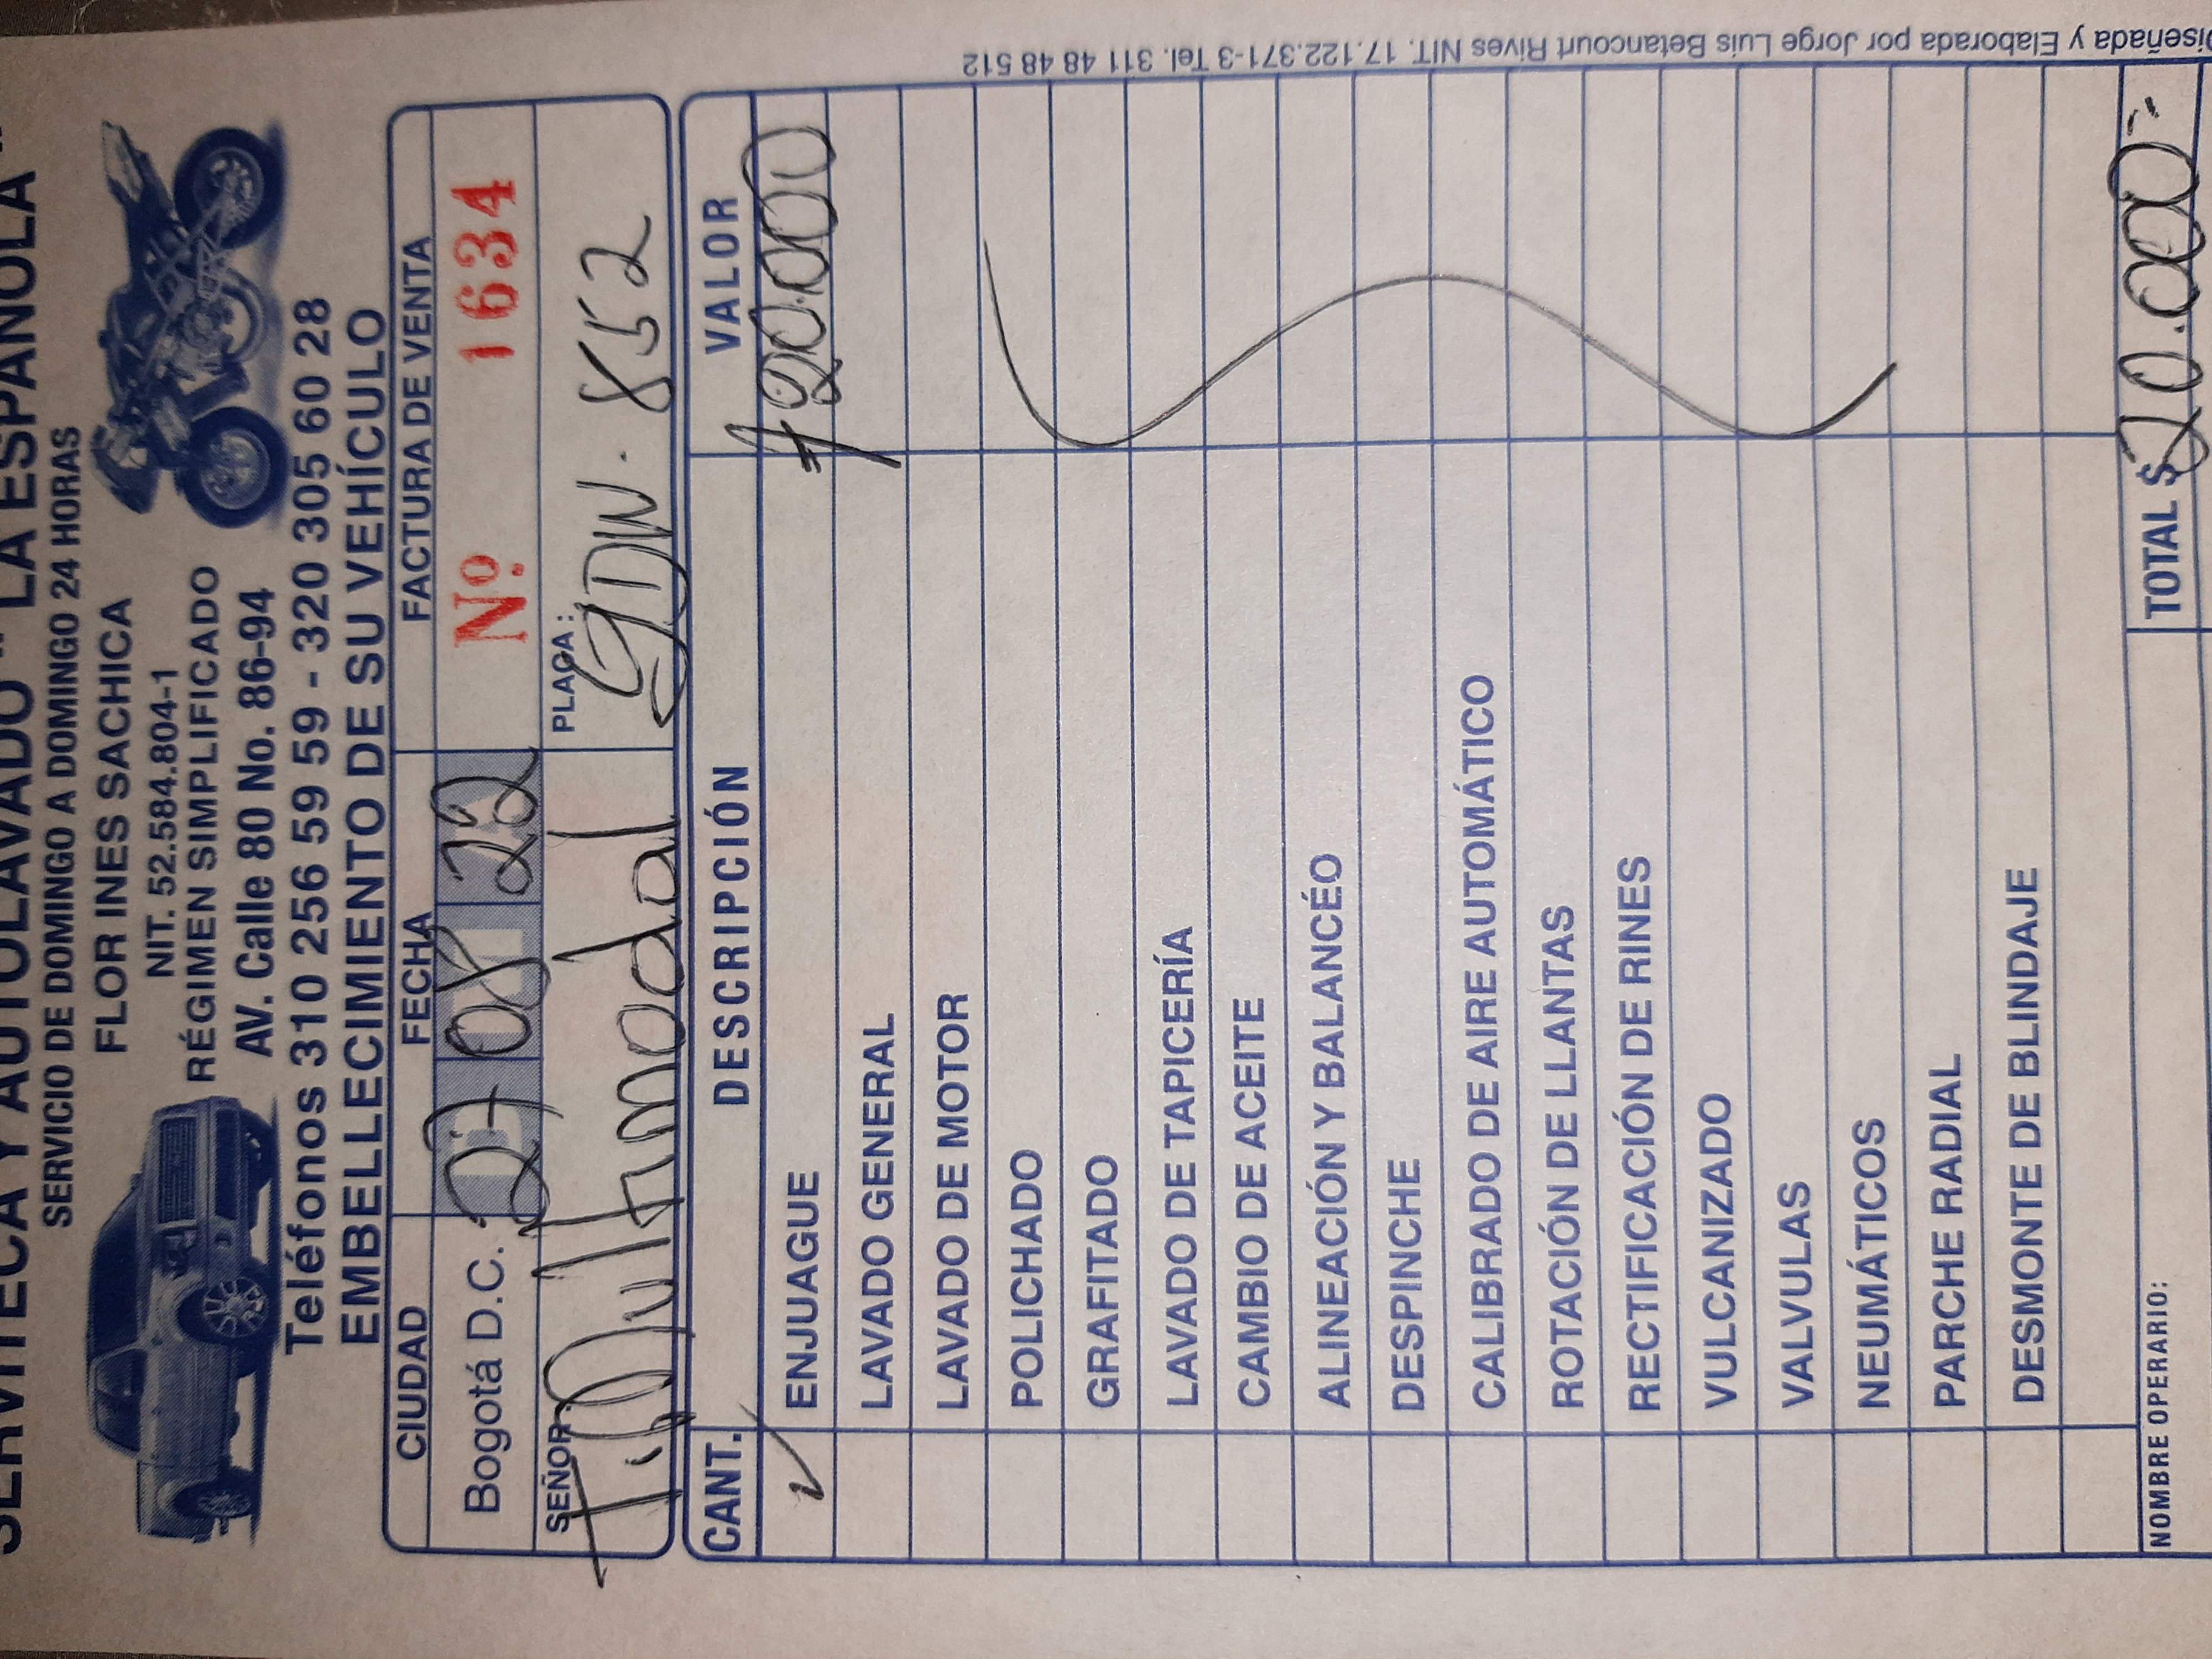 SERVITECA Y AUTOLAVADO "LA ESPAÑOLA"
SERVICIO DE DOMINGO A DOMINGO 24 HORAS
FLOR INES SACHICA
NIT. 52.584.804-1
RÉGIMEN SIMPLIFICADO
AV. Calle 80 No. 86-94
Teléfonos 310 256 59 59 - 320 305 60 28
EMBELLECIMIENTO DE SU VEHÍCULO
CIUDAD FECHA FACTURA DE VENTA
Bogotá D.C. 27 08 22 Nº 1634
SEÑOR: T. Multimodal PLACA: GDW. 852
CANT. DESCRIPCIÓN VALOR
✓ ENJUAGUE $20.000
LAVADO GENERAL
LAVADO DE MOTOR
POLICHADO
GRAFITADO
LAVADO DE TAPICERÍA
CAMBIO DE ACEITE
ALINEACIÓN Y BALANCÉO
DESPINCHE
CALIBRADO DE AIRE AUTOMÁTICO
ROTACIÓN DE LLANTAS
RECTIFICACIÓN DE RINES
VULCANIZADO
VALVULAS
NEUMÁTICOS
PARCHE RADIAL
DESMONTE DE BLINDAJE
NOMBRE OPERARIO: TOTAL $ 20.000=
Diseñada y Elaborada por Jorge Luís Betancourt Rives NIT. 17.122.371-3 Tel. 311 48 48 512